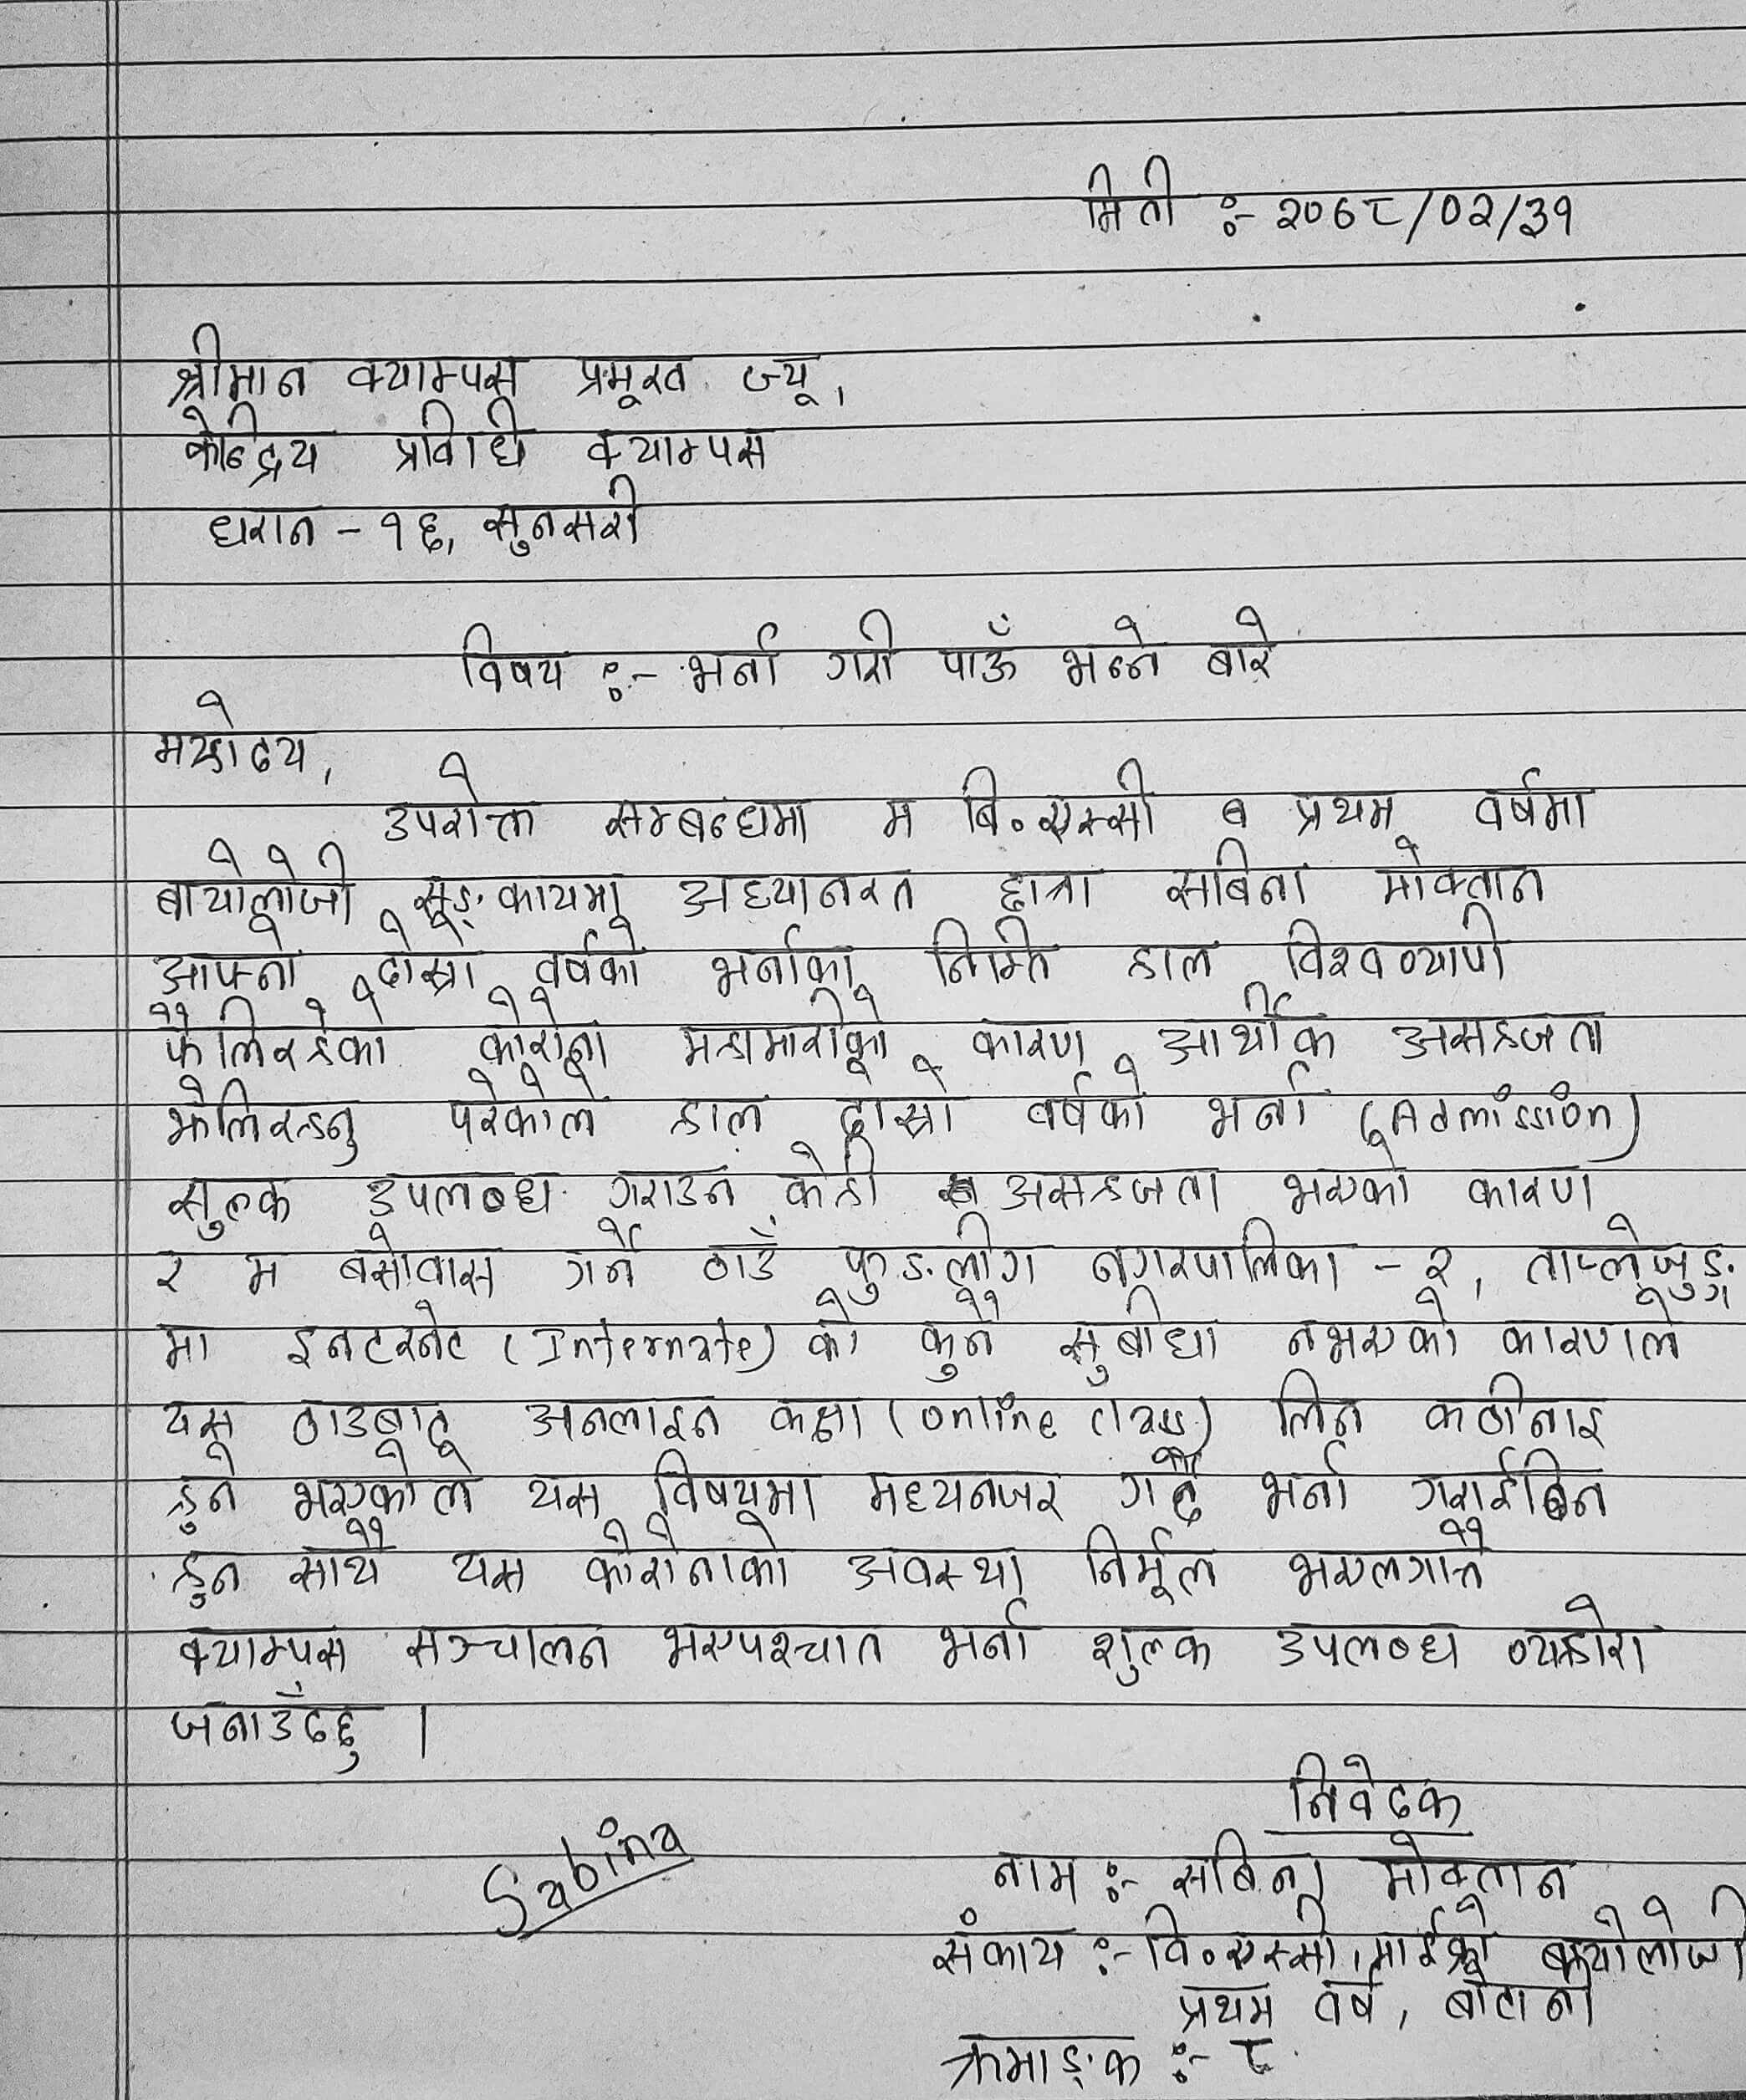 मिती :- २०७८/०२/३१
श्रीमान क्याम्पस प्रमूख ज्यू,
केन्द्रिय प्रविधि क्याम्पस
धरान - १६, सुनसरी
विषय :- भर्ना गरी पाऊँ भन्ने बारे
महोदय,
उपरोक्त सम्बन्धमा म बि.एस्सी प्रथम वर्षमा
बायोलोजी सङ्कायमा अध्यानरत छात्रा सबिना मोक्तान
आफ्नो दोस्रो वर्षको भर्नाका निम्ति हाल विश्वव्यापी
फैलिरहेको कोरोना महामारीको कारण आर्थीक असहजता
झेलिरहनु परेकोले हाल दोस्रो वर्षको भर्ना (Admission)
सुल्क उपलब्ध गराउन केही असहजता भएको कारण
र म बसोवास गर्ने ठाउँ फुङलीग नगरपालिका - २, ताप्लेजुङ्ग
मा इनटरनेट (Internate) को कुनै सुबीधा नभएको कारणले
यस ठाउबाट अनलाइन कक्षा (online class) लिन कठीनाइ
हुने भएकोले यस विषयमा मध्यनजर गर्दै भर्ना गराईदिन
हुन साथै यस कोरोनाको अवस्था निर्मूल भएलगत्तै
क्याम्पस सञ्चालन भएपश्चात भर्ना शुल्क उपलब्ध व्यहोरा
जनाउँदछु ।
निवेदक
Sabina
नाम :- सबिना मोक्तान
संकाय :- वि.एस्सी, माईक्रो बायोलोजी
प्रथम वर्ष, बोटानी
क्रमाङ्क :- ८